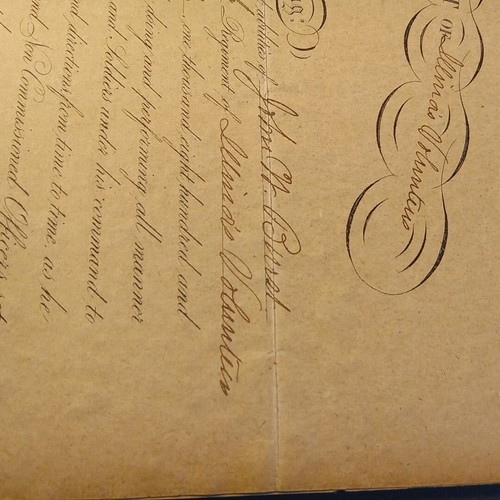 T OF Illinois Volunteers
ng:
abilities of John W. Burst
Regiment of Illinois Volunteers
one thousand eight hundred and
doing and performing all manner
and Soldiers under his command to
and directions from time to time, as he
and Non Commissioned Officers